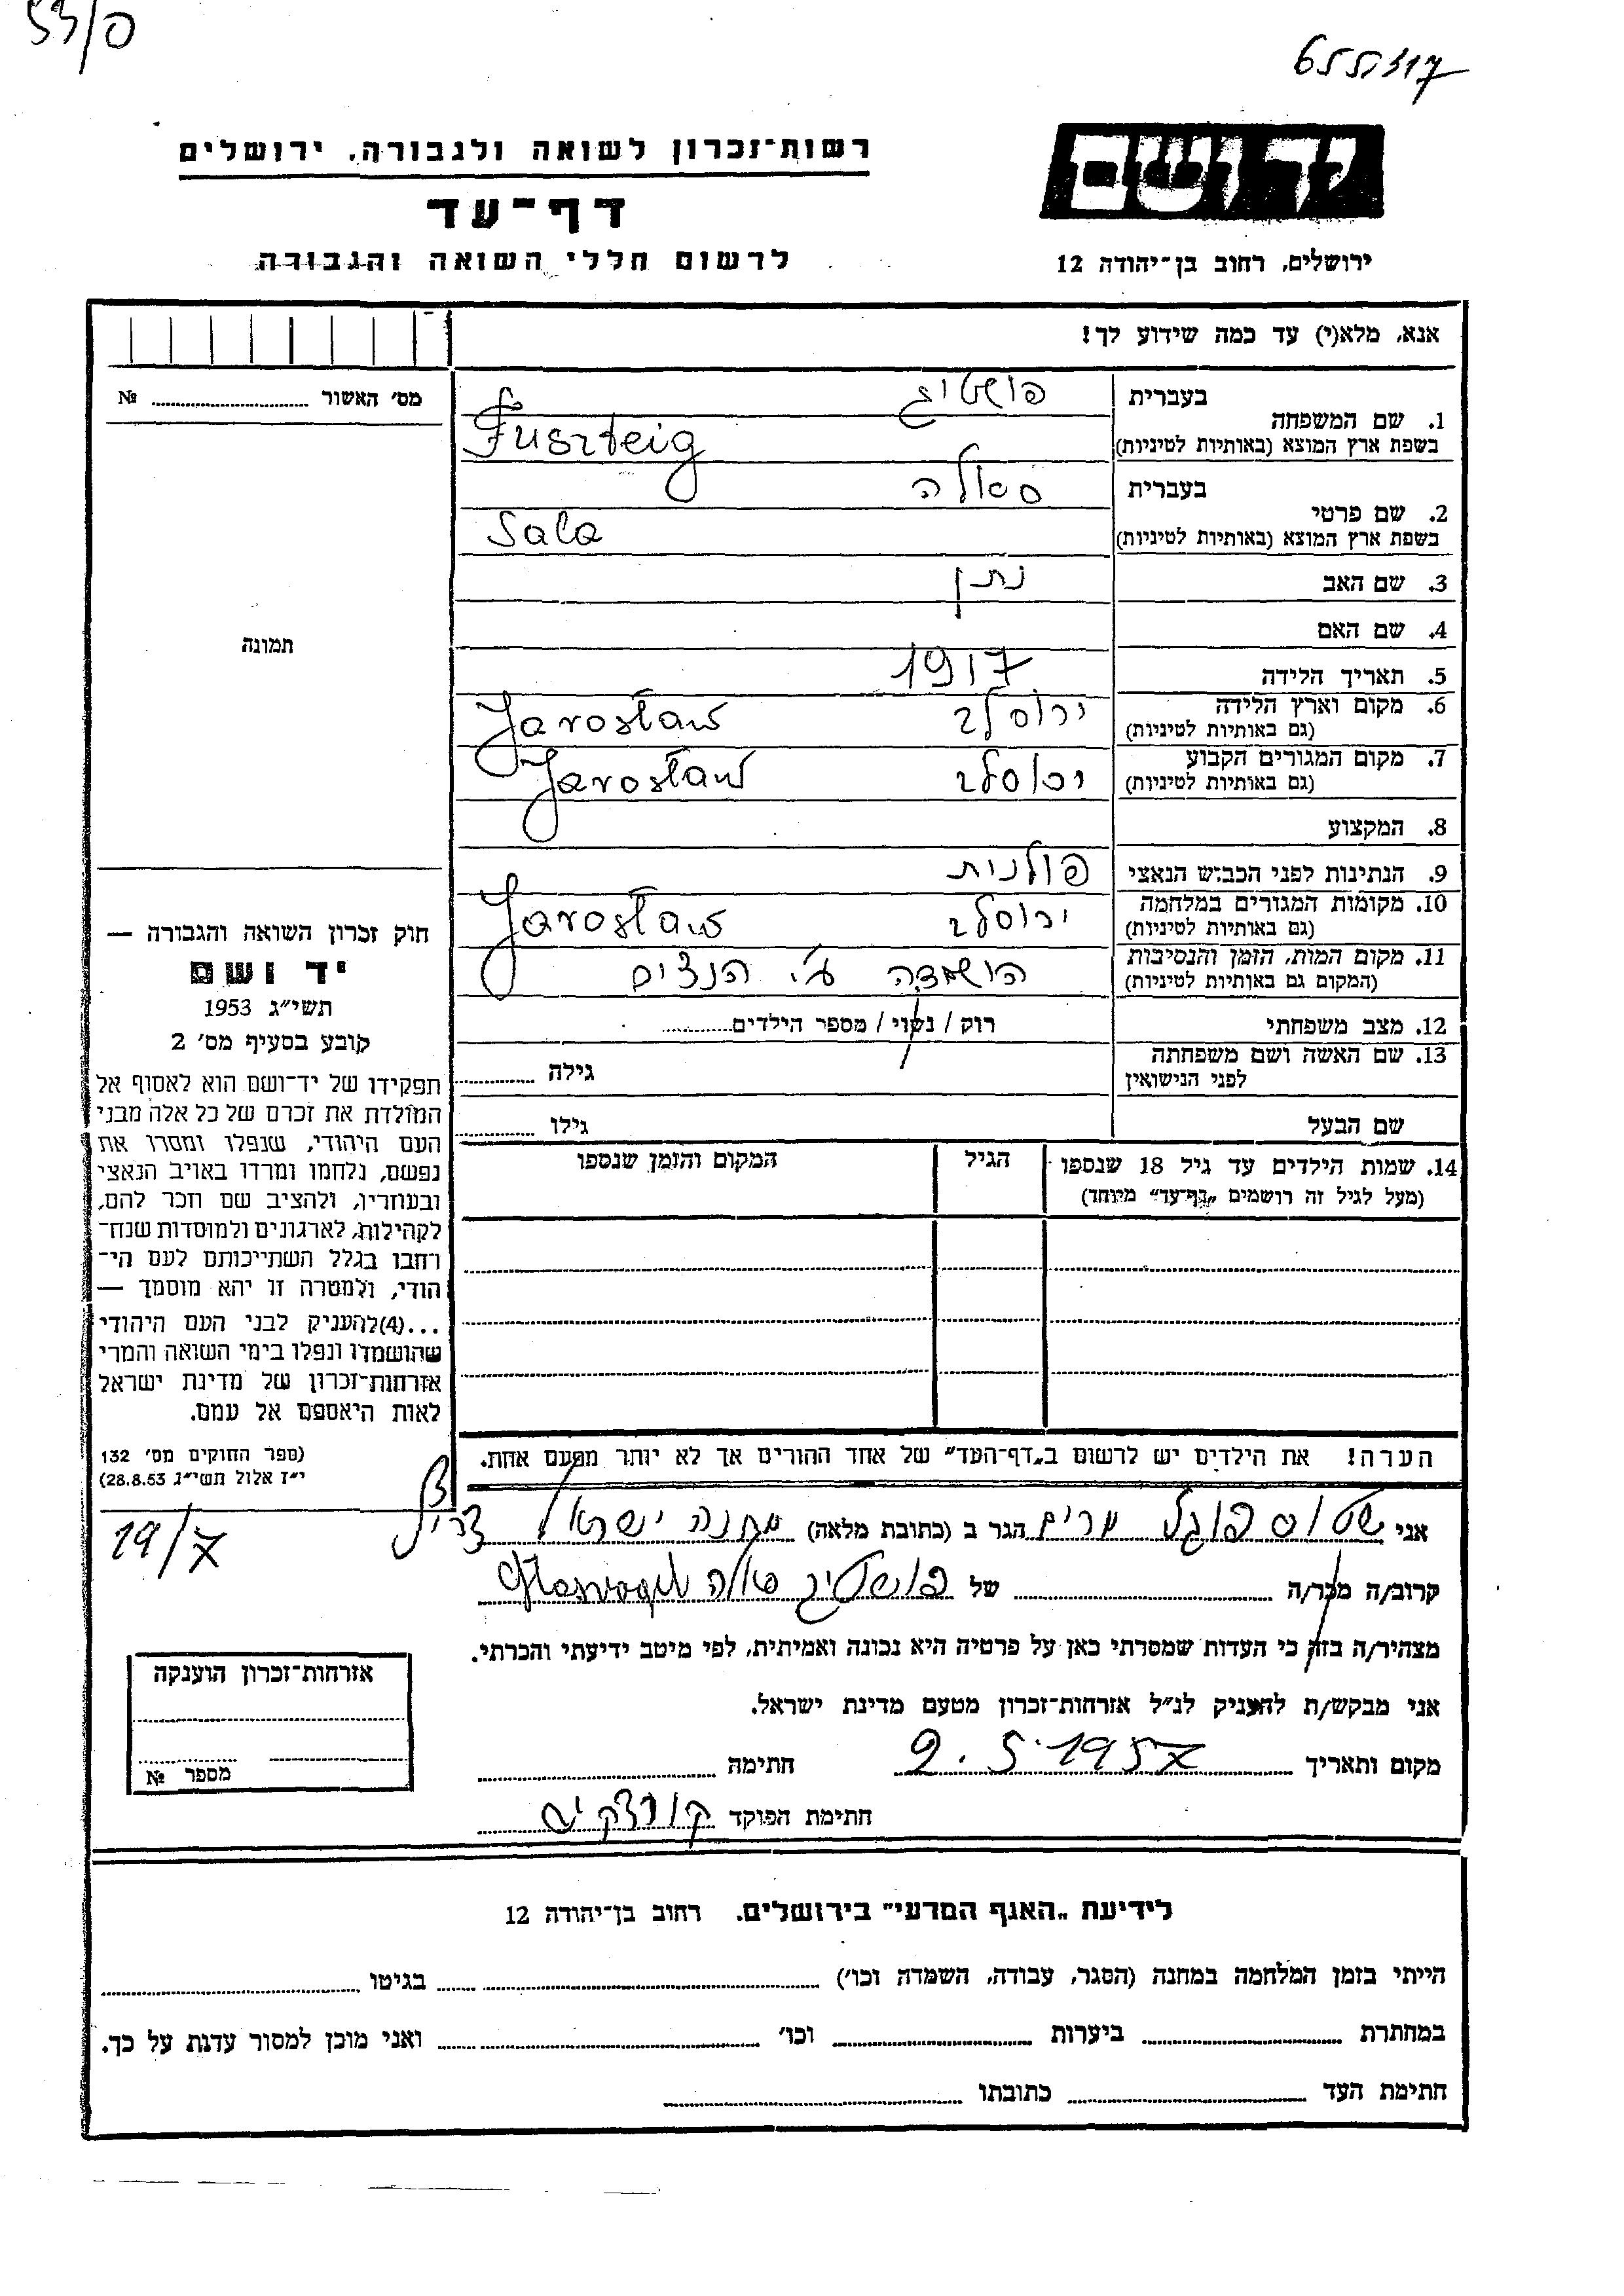 פ/55
655317
רשות־זכרון לשואה ולגבורה, ירושלים
דף־עד
לרשום חללי השואה והגבורה
יד ושם
ירושלים, רחוב בן־יהודה 12
אנא, מלא(י) עד כמה שידוע לך!
מס׳ האשור № 
1. שם המשפחה
בעברית פושטיג
בשפת ארץ המוצא (באותיות לטיניות) Fuszteig
2. שם פרטי
בעברית סאלה
בשפת ארץ המוצא (באותיות לטיניות) Sala
3. שם האב נתן
4. שם האם
5. תאריך הלידה 1917
6. מקום וארץ הלידה ירוסלב Jarosław
(גם באותיות לטיניות)
7. מקום המגורים הקבוע ירוסלב Jarosław
(גם באותיות לטיניות)
8. המקצוע
9. הנתינות לפני הכבוש הנאצי פולנית
10. מקומות המגורים במלחמה ירוסלב Jarosław
(גם באותיות לטיניות)
11. מקום המות, הזמן והנסיבות הושמדה ע״י הנצים
(המקום גם באותיות לטיניות)
12. מצב משפחתי רוק / נשוי / מספר הילדים
13. שם האשה ושם משפחתה לפני הנישואין גילה
שם הבעל גילו
14. שמות הילדים עד גיל 18 שנספו
(מעל לגיל זה רושמים „דף־עד״ מיוחד)
הגיל
המקום והזמן שנספו
הערה! את הילדים יש לרשום ב„דף־העד״ של אחד ההורים אך לא יותר מפעם אחת.
תמונה
חוק זכרון השואה והגבורה —
יד ושם
תשי״ג 1953
קובע בסעיף מס׳ 2
תפקידו של יד־ושם הוא לאסוף אל
המולדת את זכרם של כל אלה מבני
העם היהודי, שנפלו ומסרו את
נפשם, נלחמו ומרדו באויב הנאצי
ובעוזריו, ולהציב שם וזכר להם,
לקהילות, לארגונים ולמוסדות שנח־
רבו בגלל השתייכותם לעם הי־
הודי, ולמטרה זו יהא מוסמך —
...(4) להעניק לבני העם היהודי
שהושמדו ונפלו בימי השואה והמרי
אזרחות־זכרון של מדינת ישראל
לאות היאספם אל עמם.
(ספר החוקים מס׳ 132
י״ז אלול תשי״ג 28.8.53)
19/7
אני מרים הגר ב (כתובת מלאה) מחנה ישראל צריף
קרוב/ה מכר/ה של פושטיג סאלה
מצהיר/ה בזה כי העדות שמסרתי כאן על פרטיה היא נכונה ואמיתית, לפי מיטב ידיעתי והכרתי.
אני מבקש/ת להעניק לנ״ל אזרחות־זכרון מטעם מדינת ישראל.
מקום ותאריך 2.5.1957 חתימה
חתימת הפוקד
אזרחות־זכרון הוענקה
מספר №
לידיעת „האגף המדעי״ בירושלים. רחוב בן־יהודה 12
הייתי בזמן המלחמה במחנה (הסגר, עבודה, השמדה וכו׳) בגיטו
במחתרת ביערות וכו׳ ואני מוכן למסור עדות על כך.
חתימת העד כתובתו